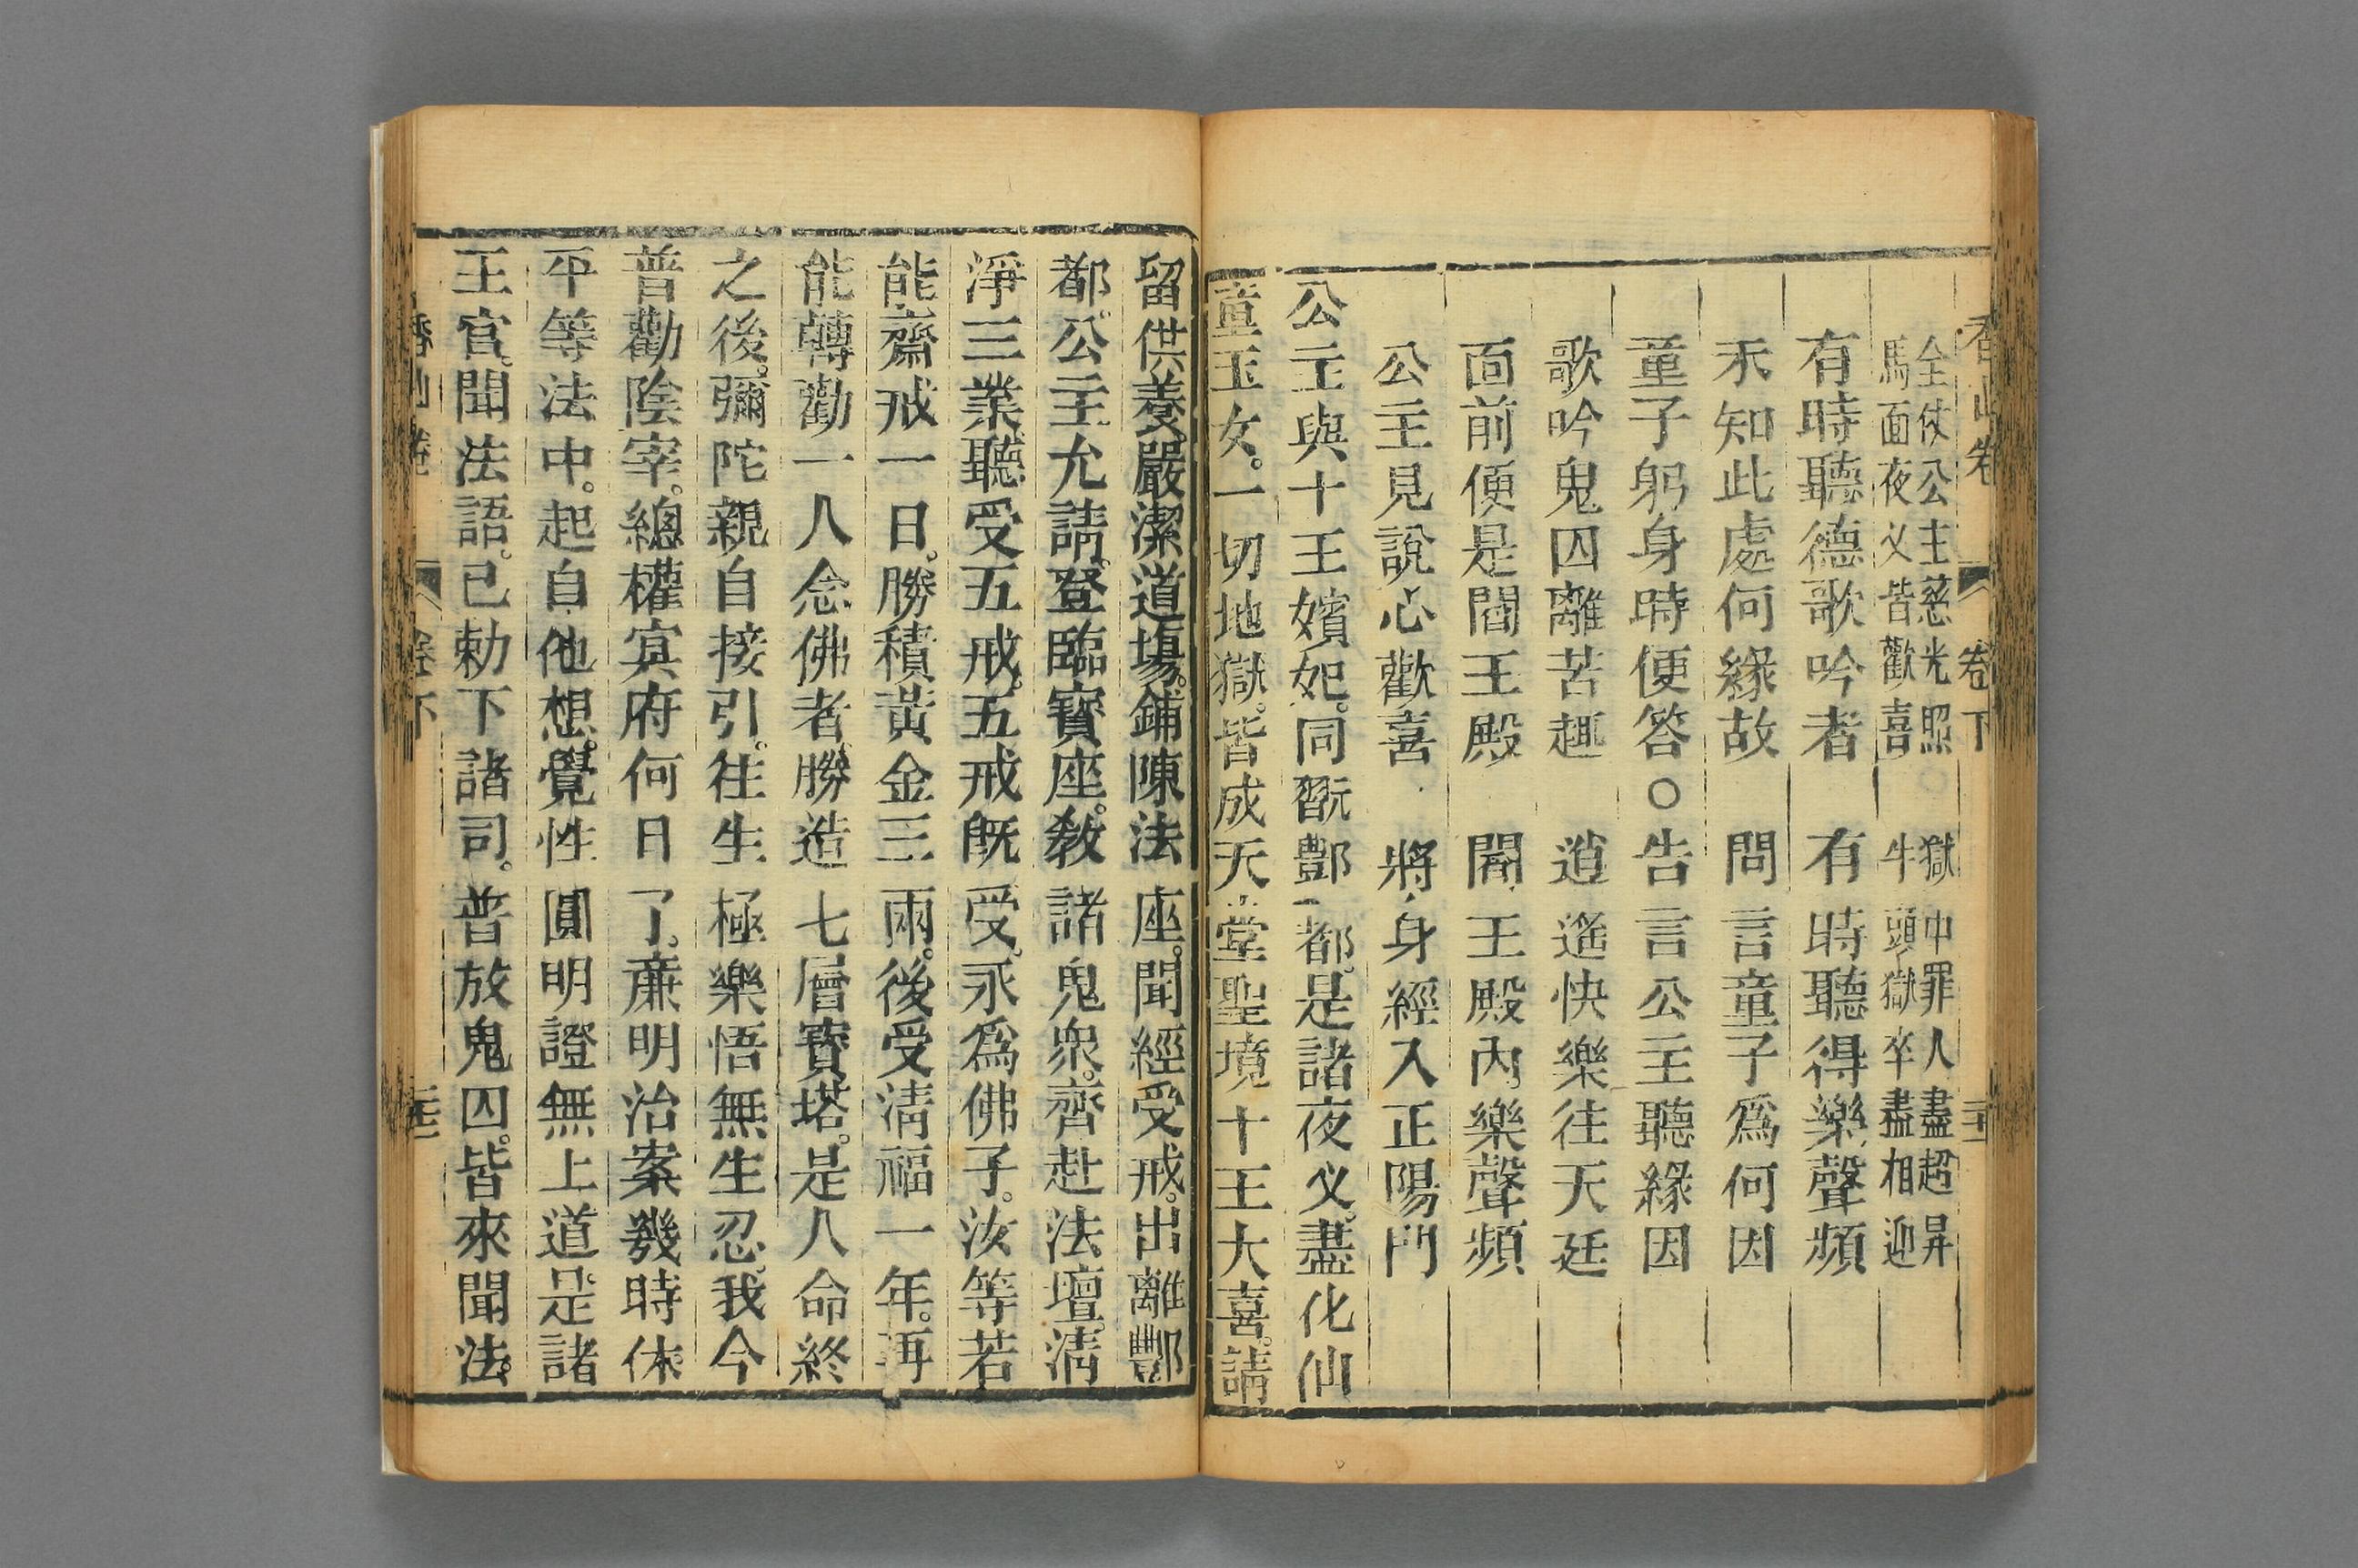 香山卷 卷下
全仗公主慈光照 獄中罪人盡超昇
馬面夜乂皆歡喜 牛頭獄卒盡相迎
有時聽德歌吟者 有時聽得樂聲頻
不知此處何緣故 問言童子爲何因
童子躬身時便答○告言公主聽緣因
歌吟鬼囚離苦趣 逍遙快樂往天廷
面前便是閻王殿 閻王殿內樂聲頻
公主見說心歡喜 將身經入正陽門
公主與十王嬪妃。同翫酆都。是諸夜乂。盡化仙
童玉女。一切地獄。皆成天堂聖境十王大喜。請
留供養。嚴潔道場。鋪陳法座。聞經受戒。出離酆
都。公主允請。登臨寶座。敎諸鬼衆。齊赴法壇。淸
淨三業。聽受五戒。五戒旣受。永爲佛子。汝等若
能齋戒一日。勝積黃金三兩。後受淸福一年。再
能轉勸一人念佛者。勝造七層寶塔。是人命終
之後。彌陀親自接引。往生極樂悟無生忍。我今
普勸陰宰。總權冥府何日了。廉明治案幾時休。
平等法中。起自他想。覺性圓明證無上道。是諸
王官。聞法語。已勅下諸司。普放鬼囚。皆來聞法。
香山卷 卷下